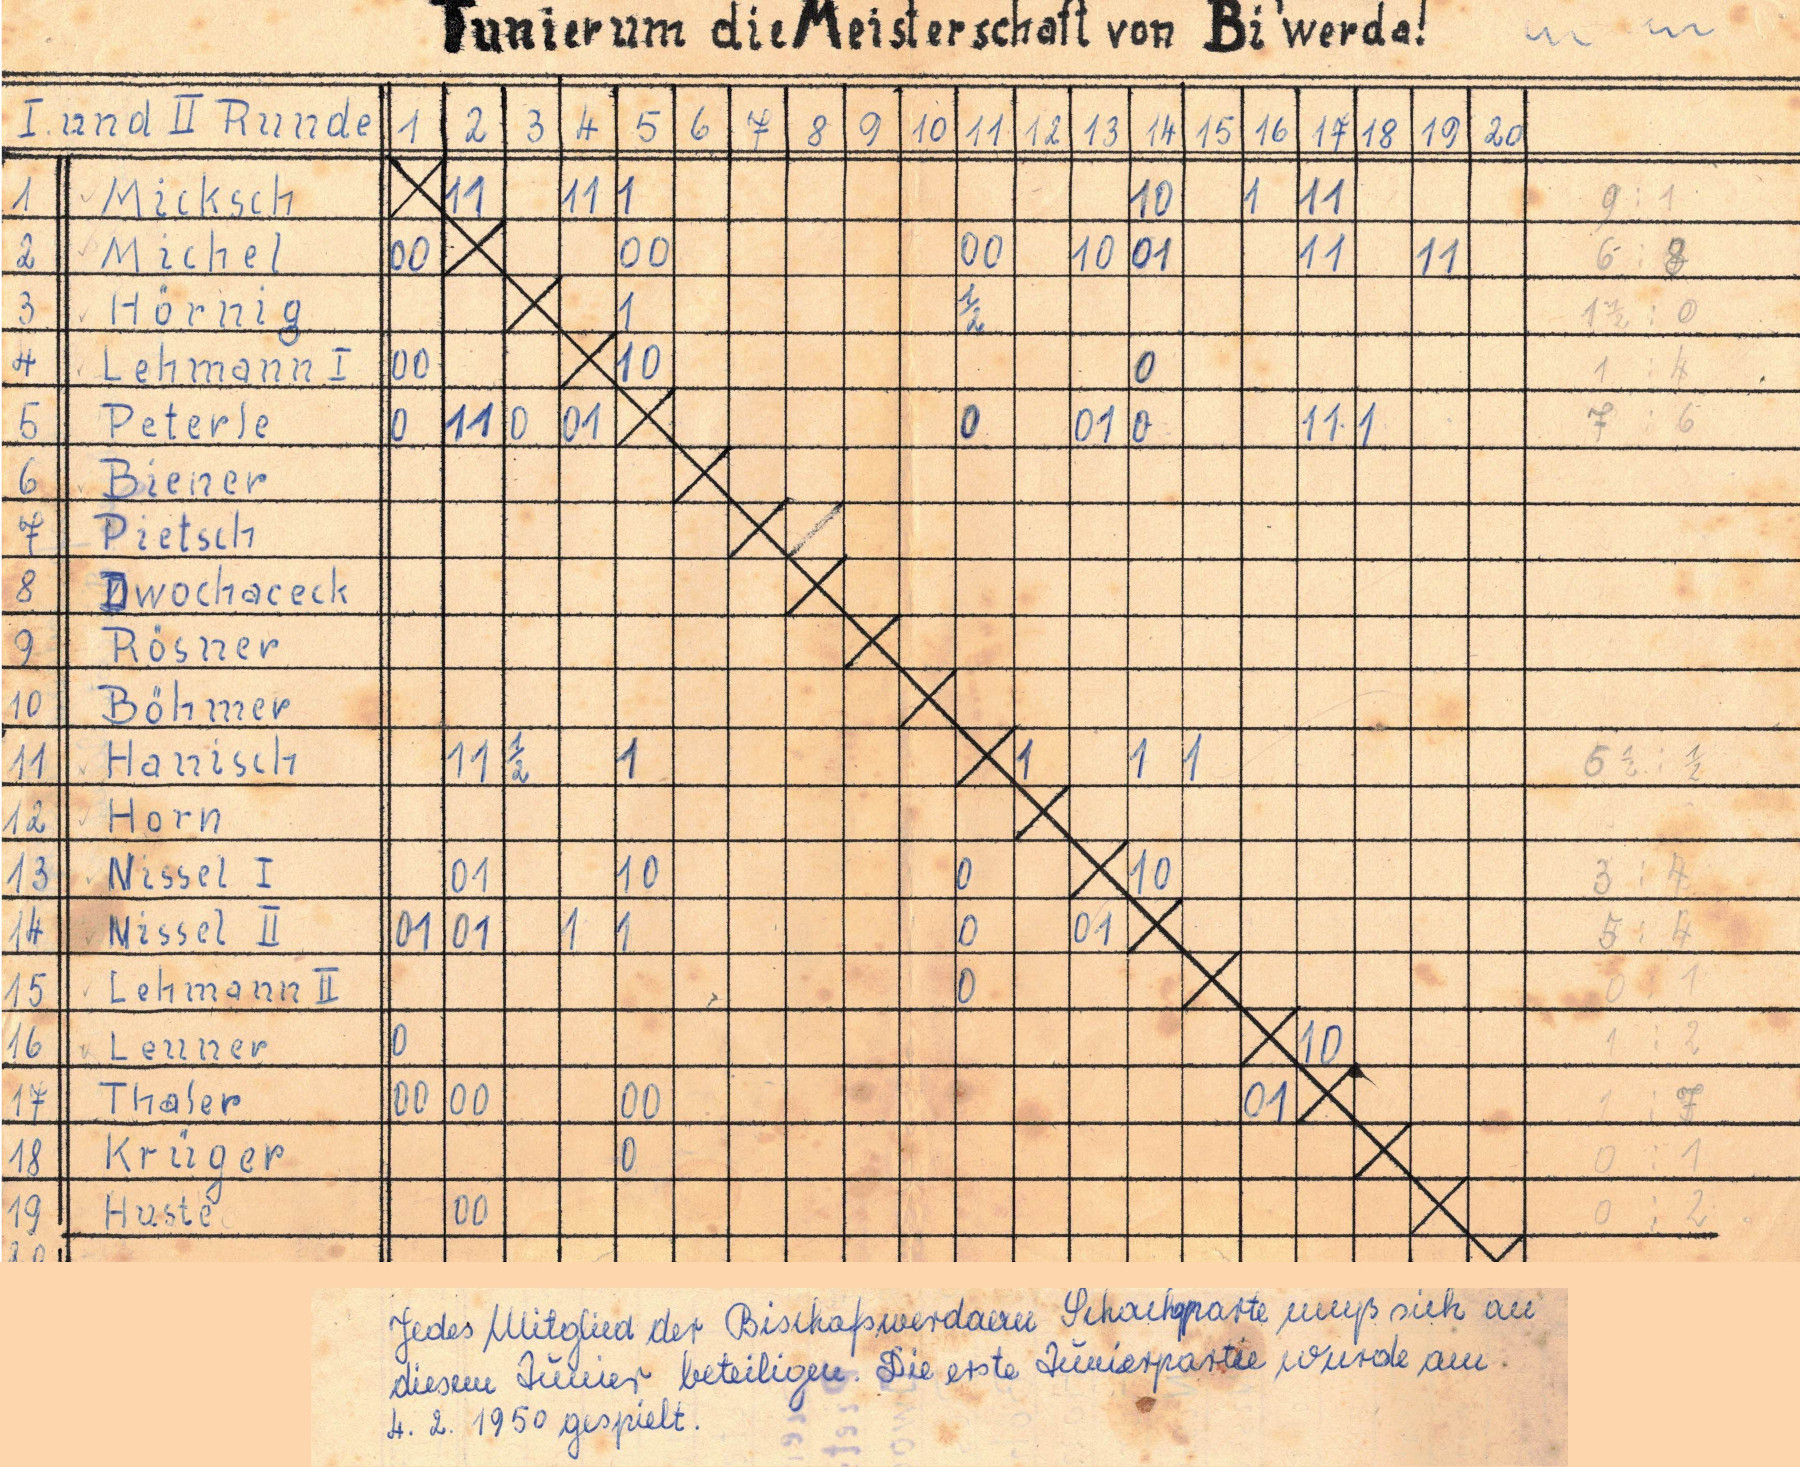 Tunier um die Meisterschaft von Bi'werda!
I. und II Runde 1 2 3 4 5 6 7 8 9 10 11 12 13 14 15 16 17 18 19 20
1 Micksch 11 11 1 10 1 11 9 : 1
2 Michel 00 00 00 10 01 11 11 6 : 8
3 Hörnig 1 ½ 1½ : 0
4 Lehmann I 00 10 0 1 : 4
5 Peterle 0 11 0 01 0 01 0 11 1 7 : 6
6 Biener
7 Pietsch
8 Dwochaceck
9 Rösner
10 Böhmer
11 Hanisch 11 ½ 1 1 1 1 6½ : ½
12 Horn
13 Nissel I 01 10 0 10 3 : 4
14 Nissel II 01 01 1 1 0 01 5 : 4
15 Lehmann II 0 0 : 1
16 Leuner 0 10 1 : 2
17 Thaler 00 00 00 01 1 : 7
18 Krüger 0 0 : 1
19 Huste 00 0 : 2
20
Jedes Mitglied der Bischofswerdaer Schachsparte muß sich an
diesem Tunier beteiligen. Die erste Tunierpartie wurde am
4. 2. 1950 gespielt.